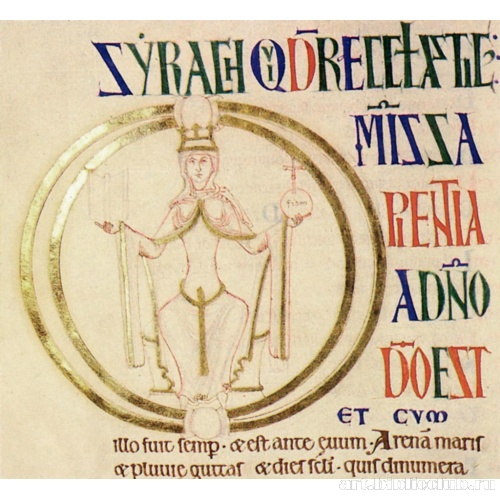 SYRACH QVI DR ECCLASTIC:
OMIS SA
PIENTIA
A DNO
DO EST
ET CVM
illo fuit semp · & est ante euum · Arenā maris
& pluuie guttas & dies scli · quis dinumera